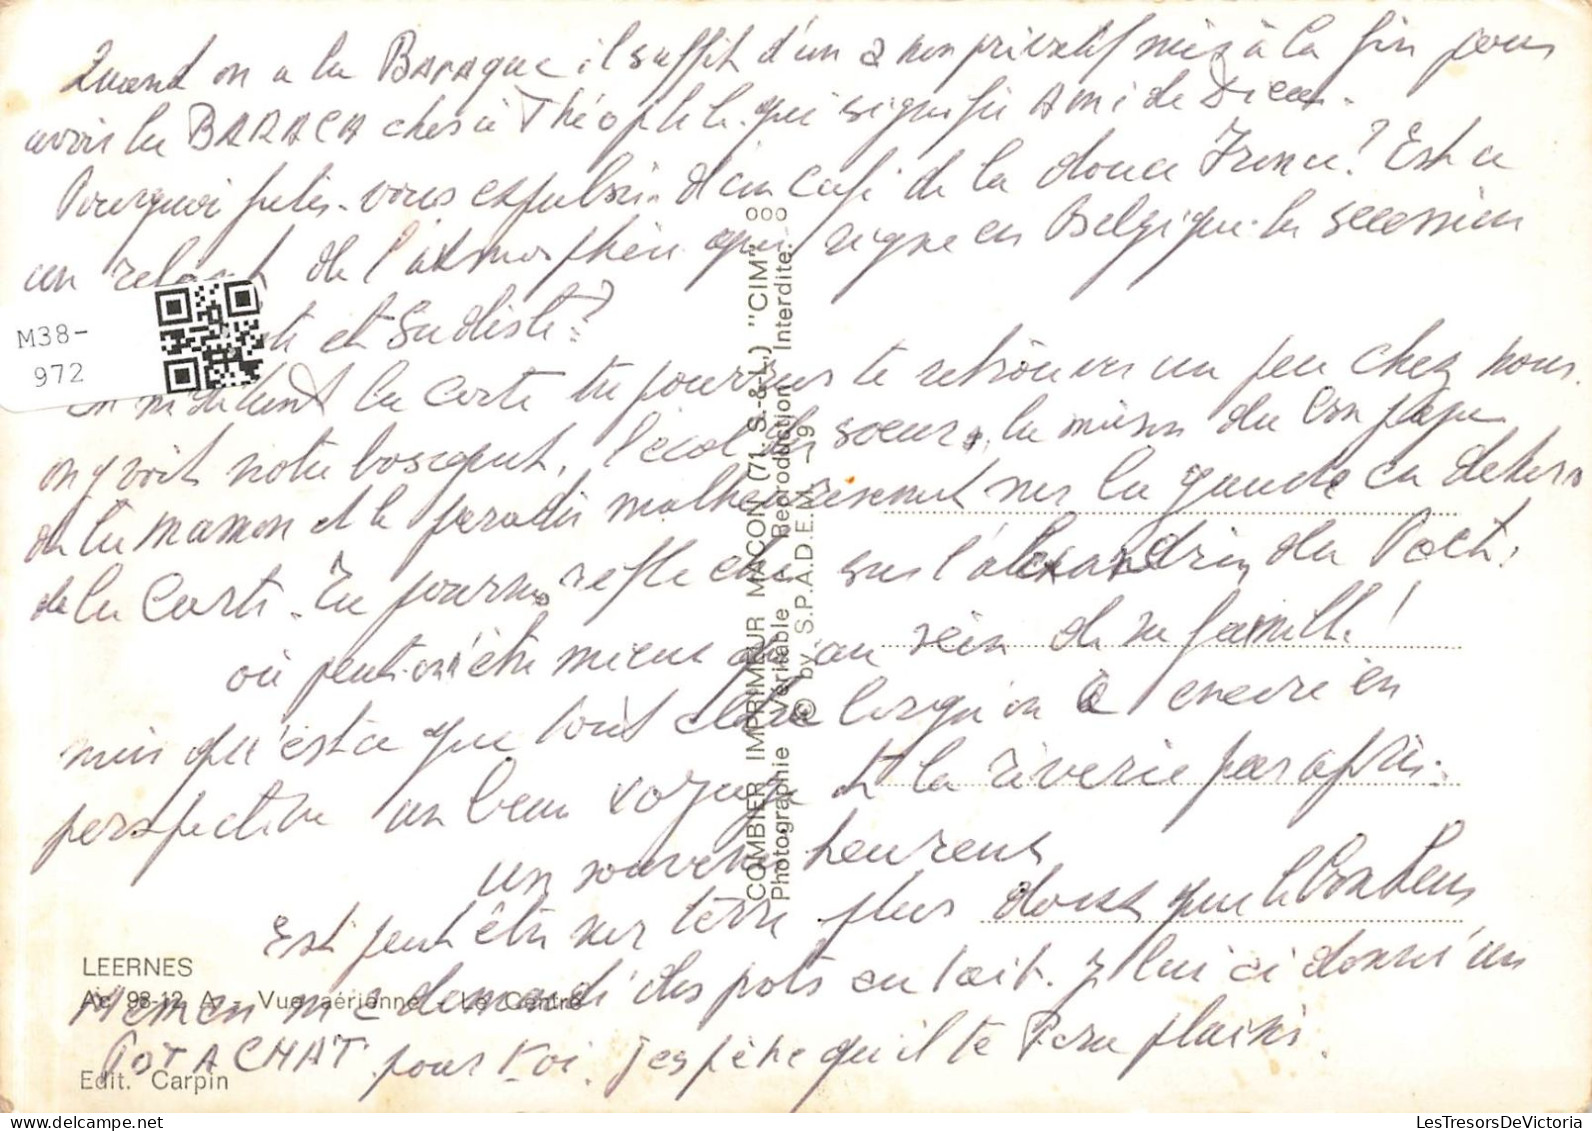 Quand on a la BARAque il suffit d'un a non privatif mis à la fin pour
avoir la BARACA chère à Théophile qui signifie Ami de Dieu.
Pourquoi fûtes-vous expulsé d'un café de la douce France? Est ce
un relent de l'atmosphère qui règne en Belgique la sécession
et Sudiste?
M38-
972
la carte tu pourras te retrouver un peu chez nous.
on y voit notre bosquet, l'école des soeurs, la maison du
de la maison et le paradis malheureusement sur la gauche en dehors
de la Carte. Tu pourras réfléchir sur l'alexandrin du Poète:
où peut-on être mieux qu'au sein de sa famille!
mais qu'est ce que tout cela lorsqu'on a encore en
perspective un beau voyage et la rêverie par après.
un souvenir heureux
Est peut être sur terre plus doux que le bonheur
LEERNES
Ac 98-12 A - Vue aérienne - Le Centre
m'a demandé des pots au lait. Je lui ai donné un
POT A CHAT pour toi. J'espère qu'il te fera plaisir.
Edit. Carpin
COMBIER IMPRIMEUR MACON (71 S.-&-L.) "CIM"
Photographie Véritable - Reproduction Interdite.
© by S.P.A.D.E.M. -19
LesTresorsDeVictoria